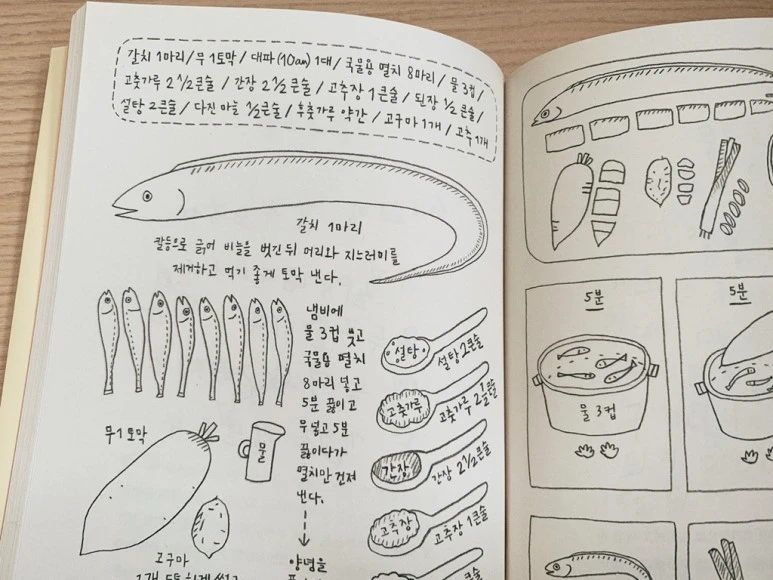 갈치 1마리 / 무 1토막 / 대파 (10cm) 1대 / 국물용 멸치 8마리 / 물 3컵 /
고춧가루 2 1/2큰술 / 간장 2 1/2큰술 / 고추장 1큰술 / 된장 1/2큰술 /
설탕 2큰술 / 다진 마늘 1/2큰술 / 후춧가루 약간 / 고구마 1개 / 고추 1개
갈치 1마리
칼등으로 긁어 비늘을 벗긴 뒤 머리와 지느러미를
제거하고 먹기 좋게 토막 낸다.
냄비에
물 3컵 붓고
국물용 멸치
8마리 넣고
5분 끓이고
무 넣고 5분
끓이다가
멸치만 건져
낸다.
양념을
설탕
설탕 2큰술
고춧가루
고춧가루 2 1/2큰술
간장
간장 2 1/2큰술
고추장
고추장 1큰술
무 1토막
물
고구마
5분
물 3컵
5분